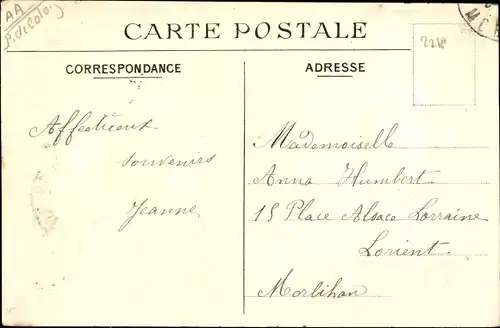 AA
CARTE POSTALE
CORRESPONDANCE
ADRESSE
2218
Affectueux
souvenirs
Jeanne
Mademoiselle
Anna Humbert
15 Place Alsace Lorraine
Lorient
Morbihan